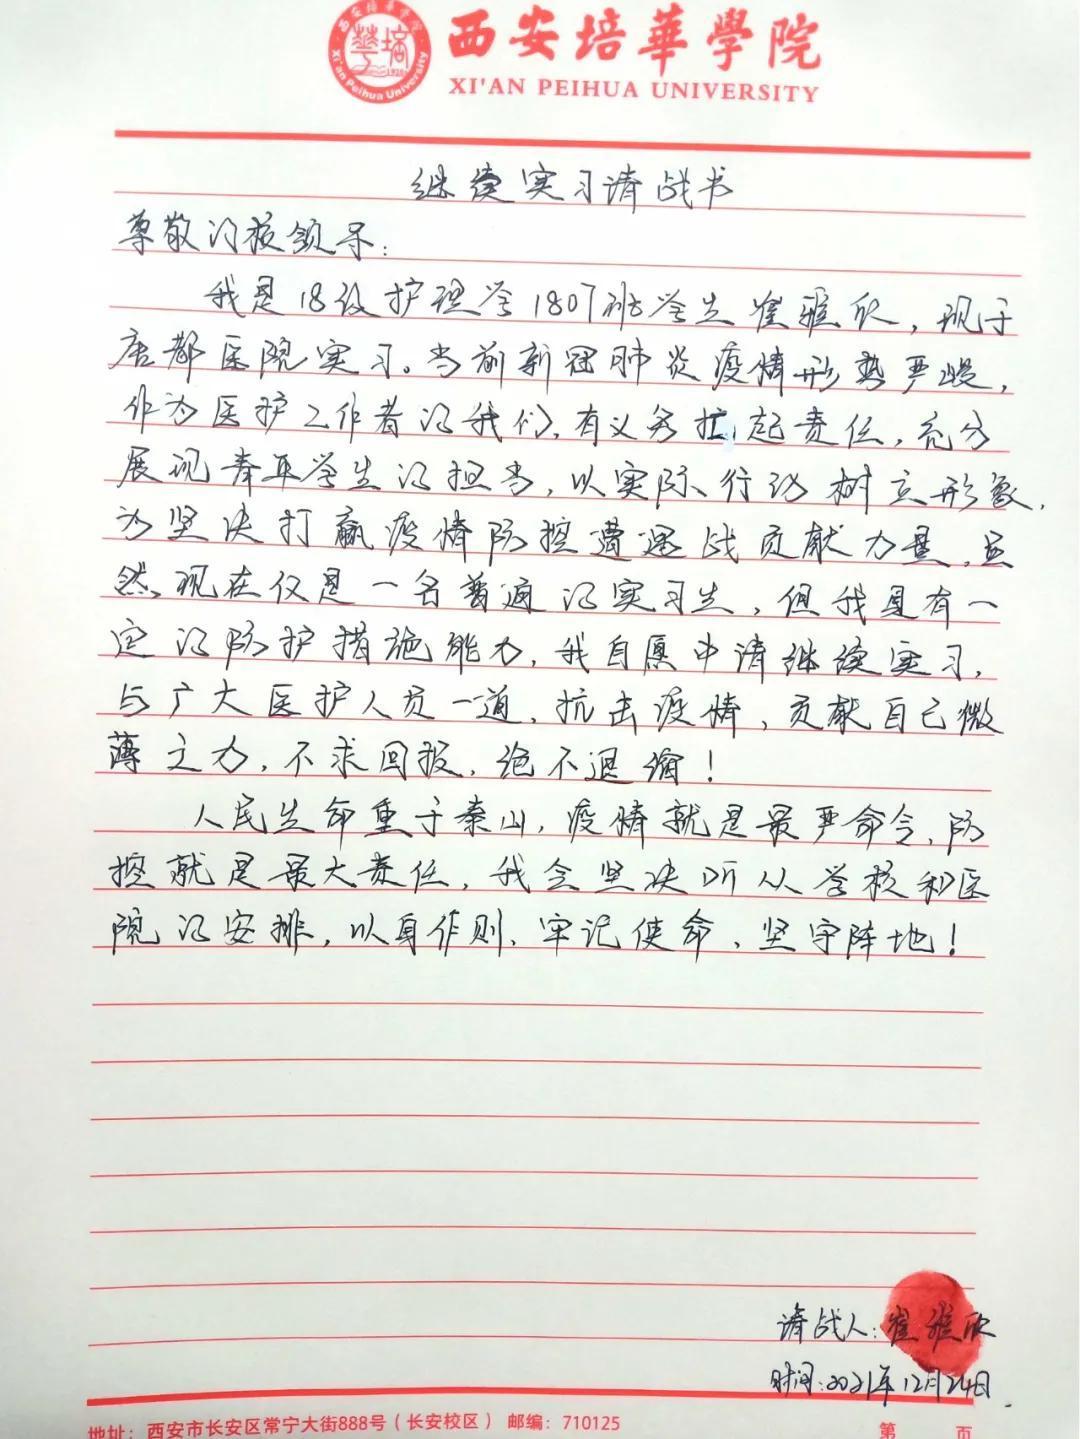 西安培華學院
XI'AN PEIHUA UNIVERSITY
西安培华学院
Xi'an Peihua University
1928
继续实习请战书
尊敬的校领导：
我是18级护理学1807班学生崔雅欣，现于
唐都医院实习。当前新冠肺炎疫情形势严峻，
作为医护工作者的我们，有义务扛起责任，充分
展现青年学生的担当，以实际行动树立形象，
为坚决打赢疫情防控遭遇战贡献力量，虽
然现在仅是一名普通的实习生，但我具有一
定的防护措施能力，我自愿申请继续实习，
与广大医护人员一道，抗击疫情，贡献自己微
薄之力，不求回报，绝不退缩！
人民生命重于泰山，疫情就是最严命令，防
控就是最大责任，我会坚决听从学校和医
院的安排，以身作则、牢记使命、坚守阵地！
请战人：崔雅欣
时间：2021年12月24日.
地址：西安市长安区常宁大街888号（长安校区） 邮编：710125
第 页